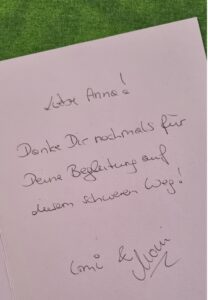 Liebe Anna!
Danke Dir nochmals für
Deine Begleitung auf
diesem schweren Weg!
&